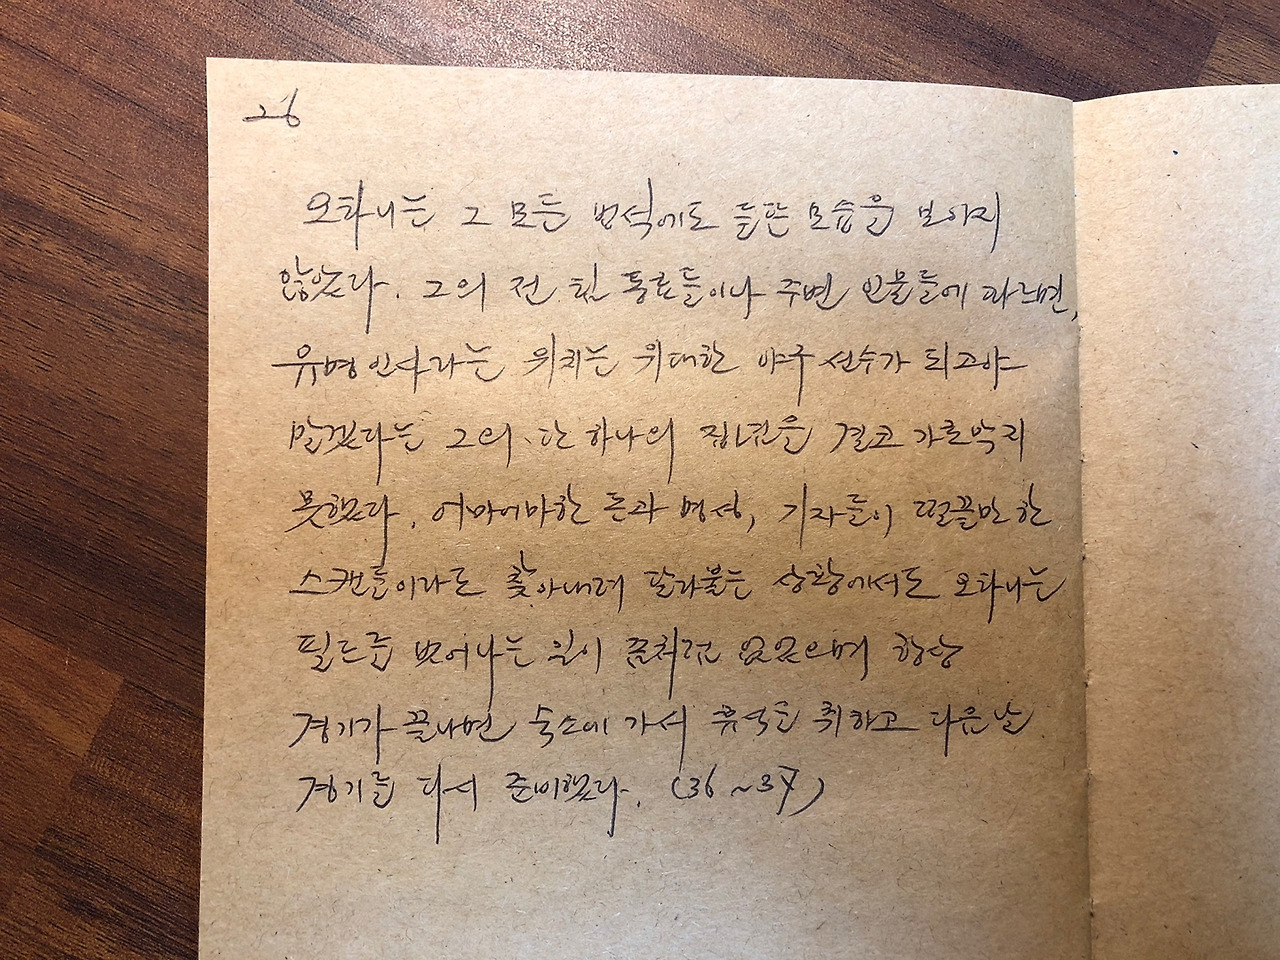 26
오타니는 그 모든 법석에도 들뜬 모습을 보이지
않았다. 그의 전 팀 동료들이나 주변 인물들에 따르면,
유명인사라는 위치는 위대한 야구 선수가 되고야
말겠다는 그의 단 하나의 집념을 결코 가로막지
못했다. 어마어마한 돈과 명성, 기자들이 털끝만 한
스캔들이라도 찾아내려 달라붙는 상황에서도 오타니는
필드를 벗어나는 일이 좀처럼 없었으며 항상
경기가 끝나면 숙소에 가서 휴식을 취하고 다음 날
경기를 다시 준비했다. (36~37)